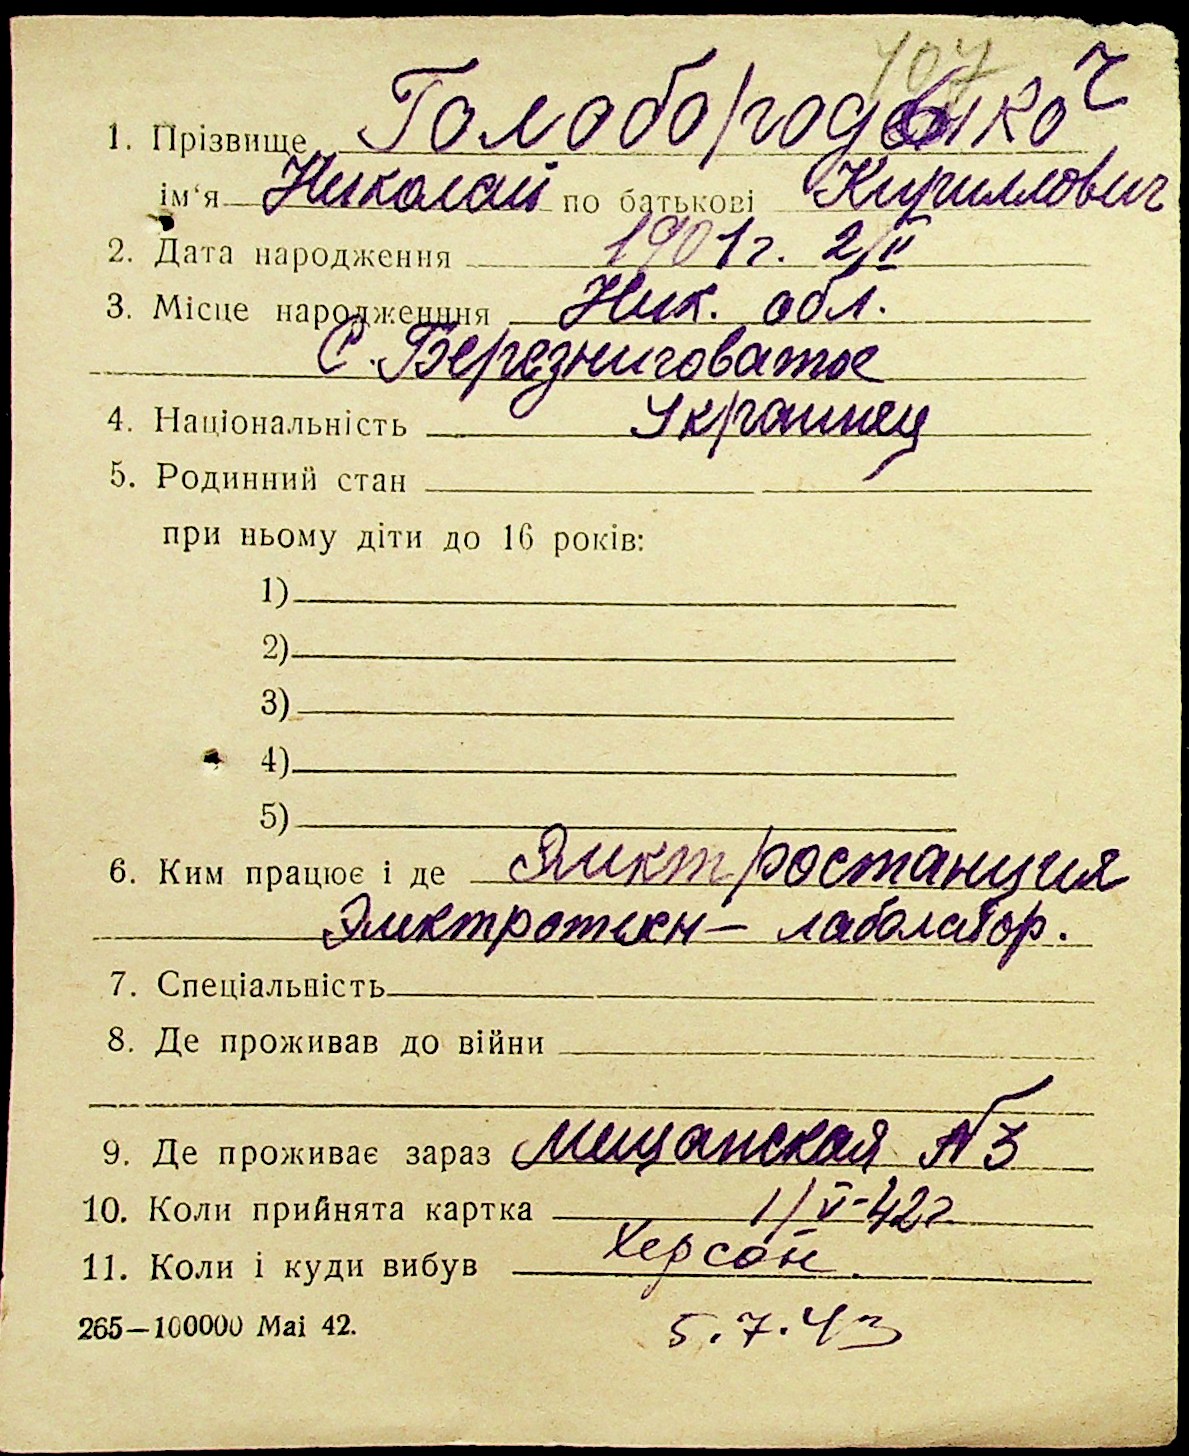 107 Ч
1. Прізвище Голобородько
ім‘я Николай по батькові Кириллович
2. Дата народження 1901 г. 2/II
3. Місце народженння Ник. обл.
С. Березниговатое
4. Національність Украинец
5. Родинний стан
при ньому діти до 16 років:
1)
2)
3)
4)
5)
6. Ким працює і де Электростанция
Электротехн – лаболатор.
7. Спеціальність
8. Де проживав до війни
9. Де проживає зараз Мещанская № 3
10. Коли прийнята картка 1/V-42 г
11. Коли і куди вибув Херсон.
265—100000 Маі 42. 5.7.43